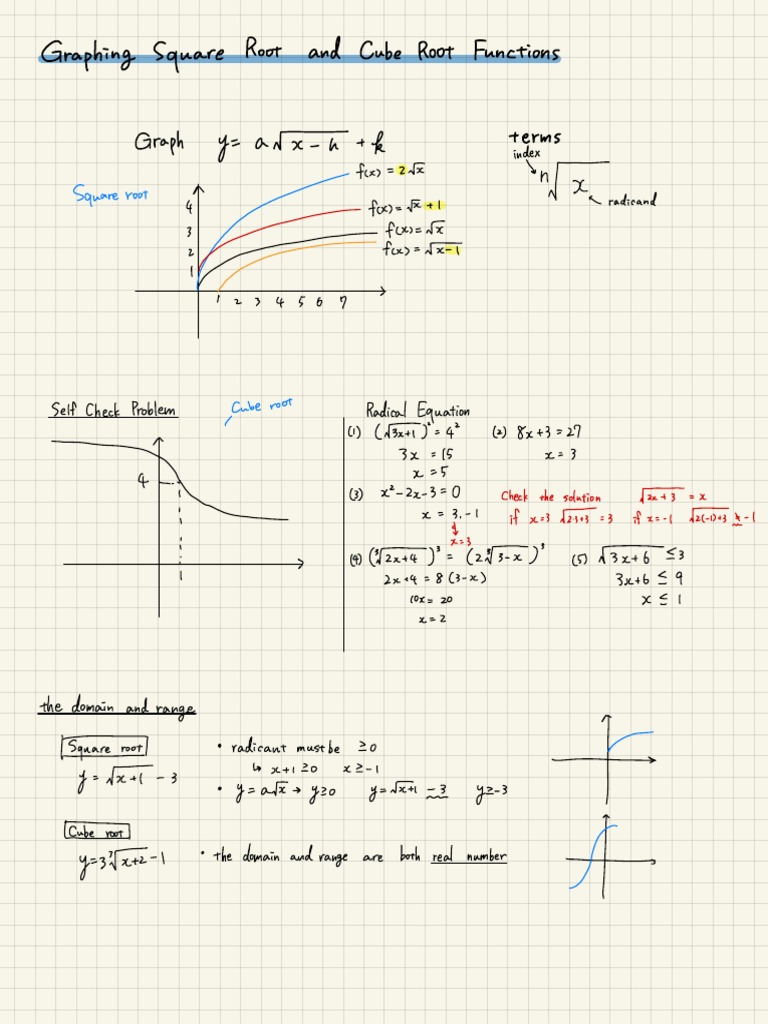 Graphing Square Root and Cube Root Functions
Graph y = a√(x-h) + k
terms
index
n√x
radicand
Square root
f(x) = 2√x
f(x) = √x +1
f(x) = √x
f(x) = √(x-1)
4
3
2
1
1 2 3 4 5 6 7
Self Check Problem
Cube root
4
1
Radical Equation
(1) (√(3x+1))² = 4²
3x = 15
x = 5
(2) 8x+3 = 27
x = 3
(3) x²-2x-3 = 0
x = 3, -1
x=3
Check the solution √(2x+3) = x
if x=3 √(2·3+3) = 3 if x=-1 √(2(-1)+3) ≠ -1
(4) (³√(2x+4))³ = (2³√(3-x))³
2x+4 = 8(3-x)
10x = 20
x = 2
(5) √(3x+6) ≤ 3
3x+6 ≤ 9
x ≤ 1
the domain and range
Square root
y = √(x+1) - 3
• radicant must be ≥0
↳ x+1 ≥0 x≥-1
• y = a√x → y≥0 y=√(x+1) -3 y≥-3
Cube root
y=3³√(x+2) -1
• the domain and range are both real number